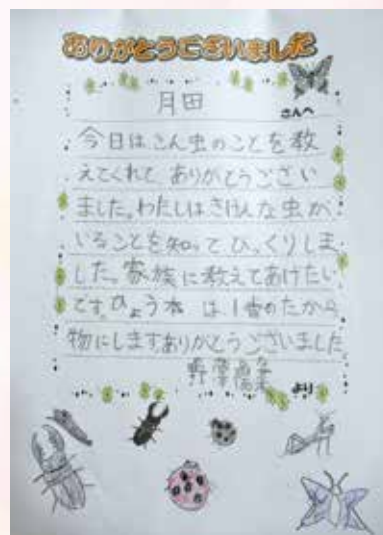 ありがとうございました
月田
さんへ
今日はこん虫のことを教
えてくれて ありがとうござい
ました。わたしはきけんな虫が
いることを知って びっくりしま
した。家族に教えてあげたい
です。ひょう本 は 1番のたから
物にします。ありがとうございました。
より